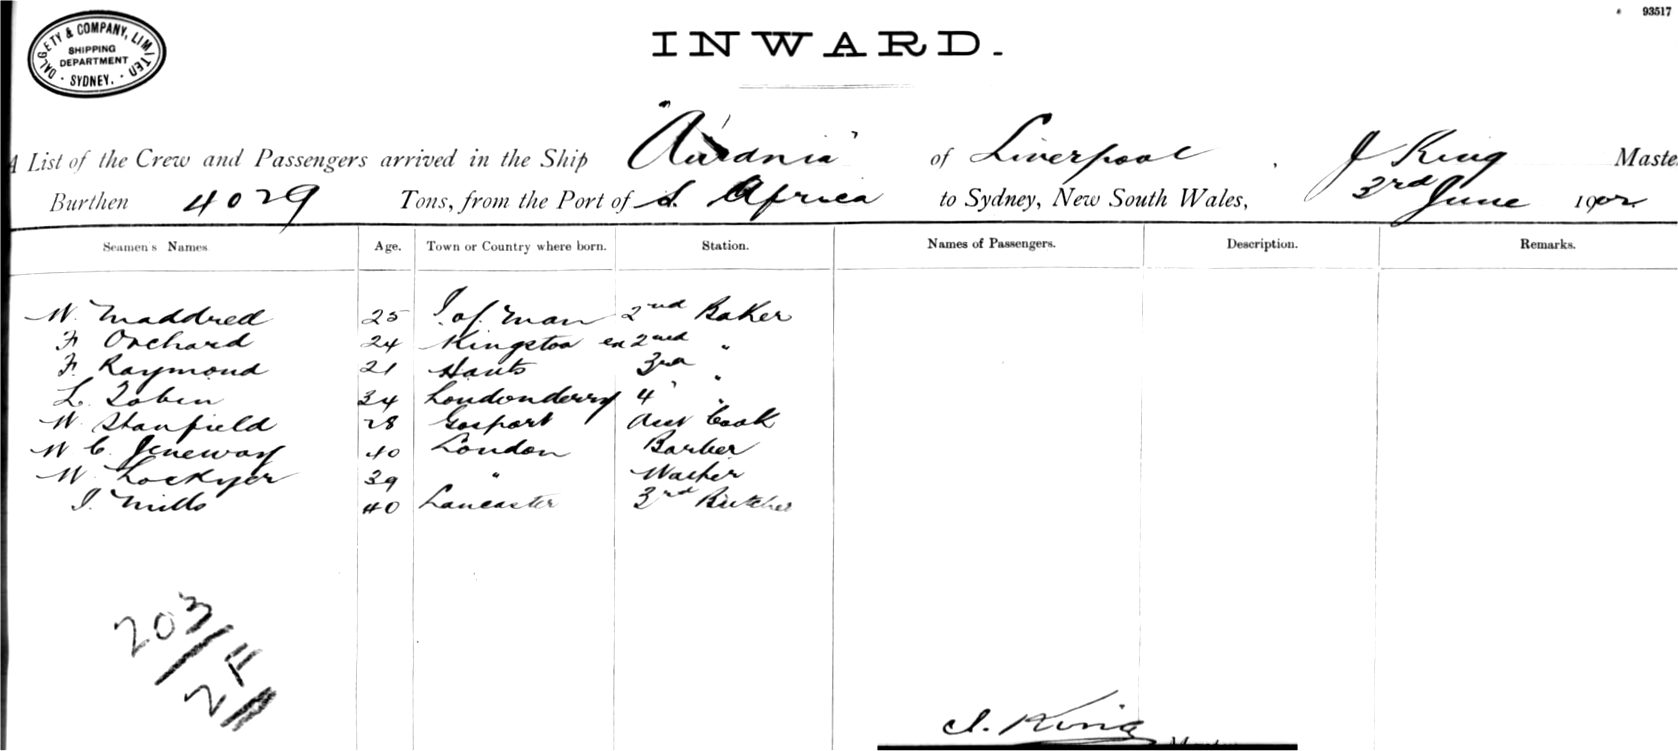 93517
DALGETY & COMPANY, LIMITED
SHIPPING
DEPARTMENT
SYDNEY.
INWARD.
A List of the Crew and Passengers arrived in the Ship "Aurania" of Liverpool, J King Maste
Burthen 4029 Tons, from the Port of S. Africa to Sydney, New South Wales, 3rd June 1902
Seamen's Names Age. Town or Country where born. Station. Names of Passengers. Description. Remarks.
W. Maddred 25 I. of. Man 2nd Baker
F. Orchard 24 Kingston 2nd "
F. Raymond 21 Hants 3rd "
L. Tobin 34 Londonderry 4 "
W Stanfield 28 Gosport Asst Cook
W C. Jineway 40 London Barber
W. Lockyer 39 "
I. Mills 40 Lancaster 3rd Butcher
203/2
J. King